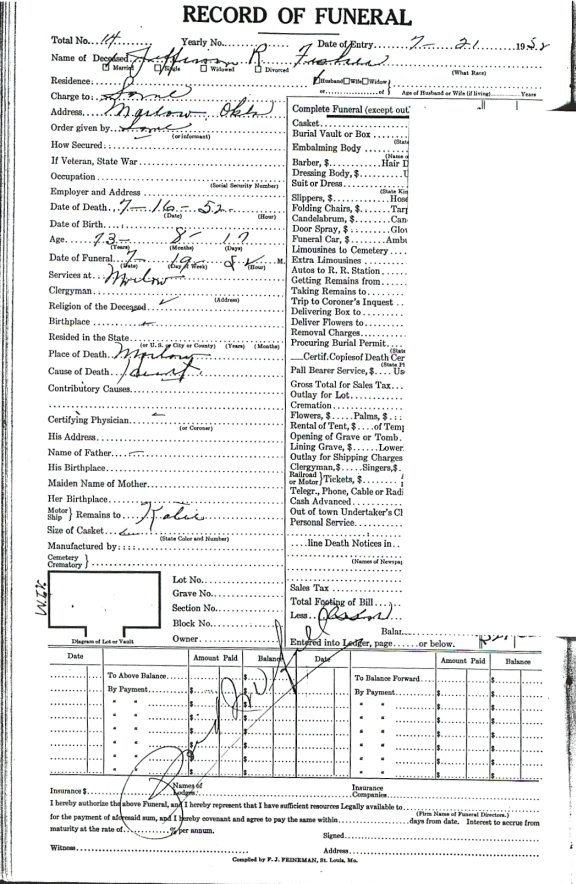 RECORD OF FUNERAL
Total No. 14 Yearly No. Date of Entry 7- 21 1952
Name of Deceased Jefferson R.
Married Single Widowed Divorced (What Race)
Residence: Husband Wife Widow
or of Age of Husband or Wife (if living) Years
Charge to
Address Marlow, Okla
Order given by
(or informant)
How Secured:
If Veteran, State War
Occupation
(Social Security Number)
Employer and Address
Date of Death 7-16-52
(Date) (Hour)
Date of Birth
Age 73 8 17
(Years) (Months) (Days)
Date of Funeral 7 19 52 M.
(Date) (Day of Week) (Hour)
Services at: Marlow
(Address)
Clergyman
Religion of the Deceased
Birthplace
Resided in the State
(or U. S. or City or County) (Years) (Months)
Place of Death Marlow
Cause of Death Heart
Contributory Causes
Certifying Physician
(or Coroner)
His Address
Name of Father
His Birthplace
Maiden Name of Mother
Her Birthplace
Motor Ship } Remains to Katie
Size of Casket
(State Color and Number)
Manufactured by
Cemetery
Crematory }
Diagram of Lot or Vault
Lot No.
Grave No.
Section No.
Block No.
Owner
Complete Funeral (except out
Casket
Burial Vault or Box
(State
Embalming Body
(Name o
Barber, $ Hair D
Dressing Body, $
Suit or Dress
(State Kin
Slippers, $ Hose
Folding Chairs, $ Tarp
Candelabrum, $ Can
Door Spray, $ Glo
Funeral Car, $ Ambu
Limousines to Cemetery
Extra Limousines
Autos to R. R. Station
Getting Remains from
Taking Remains to
Trip to Coroner's Inquest
Delivering Box to
Deliver Flowers to
Removal Charges
Procuring Burial Permit
(State
Certif.Copies of Death Cer
(State Pl
Pall Bearer Service, $ Us
Gross Total for Sales Tax
Outlay for Lot
Cremation
Flowers, $ Palms, $
Rental of Tent, $ of Temp
Opening of Grave or Tomb
Lining Grave, $ Lower
Outlay for Shipping Charges
Clergyman, $ Singers, $
Railroad or Motor } Tickets, $
Telegr., Phone, Cable or Radi
Cash Advanced
Out of town Undertaker's Cl
Personal Service
line Death Notices in
(Names of Newspap
Sales Tax
Total Footing of Bill
Less
Balan
Entered into Ledger, page or below.
Date Amount Paid Balance Date Amount Paid Balance
To Above Balance $ To Balance Forward $
By Payment $ $ By Payment $ $
" " $ $ " " $ $
" " $ $ " " $ $
" " $ $ " " $ $
" " $ $ " " $ $
" " $ $ " " $ $
" " $ $ " " $ $
Insurance $ Names of Lodges Insurance Companies
I hereby authorize the above Funeral, and I hereby represent that I have sufficient resources Legally available to
(Firm Name of Funeral Directors.)
for the payment of aforesaid sum, and I hereby covenant and agree to pay the same within days from date. Interest to accrue from
maturity at the rate of % per annum. Signed
Witness Address
Compiled by F. J. FEINEMAN, St. Louis, Mo.